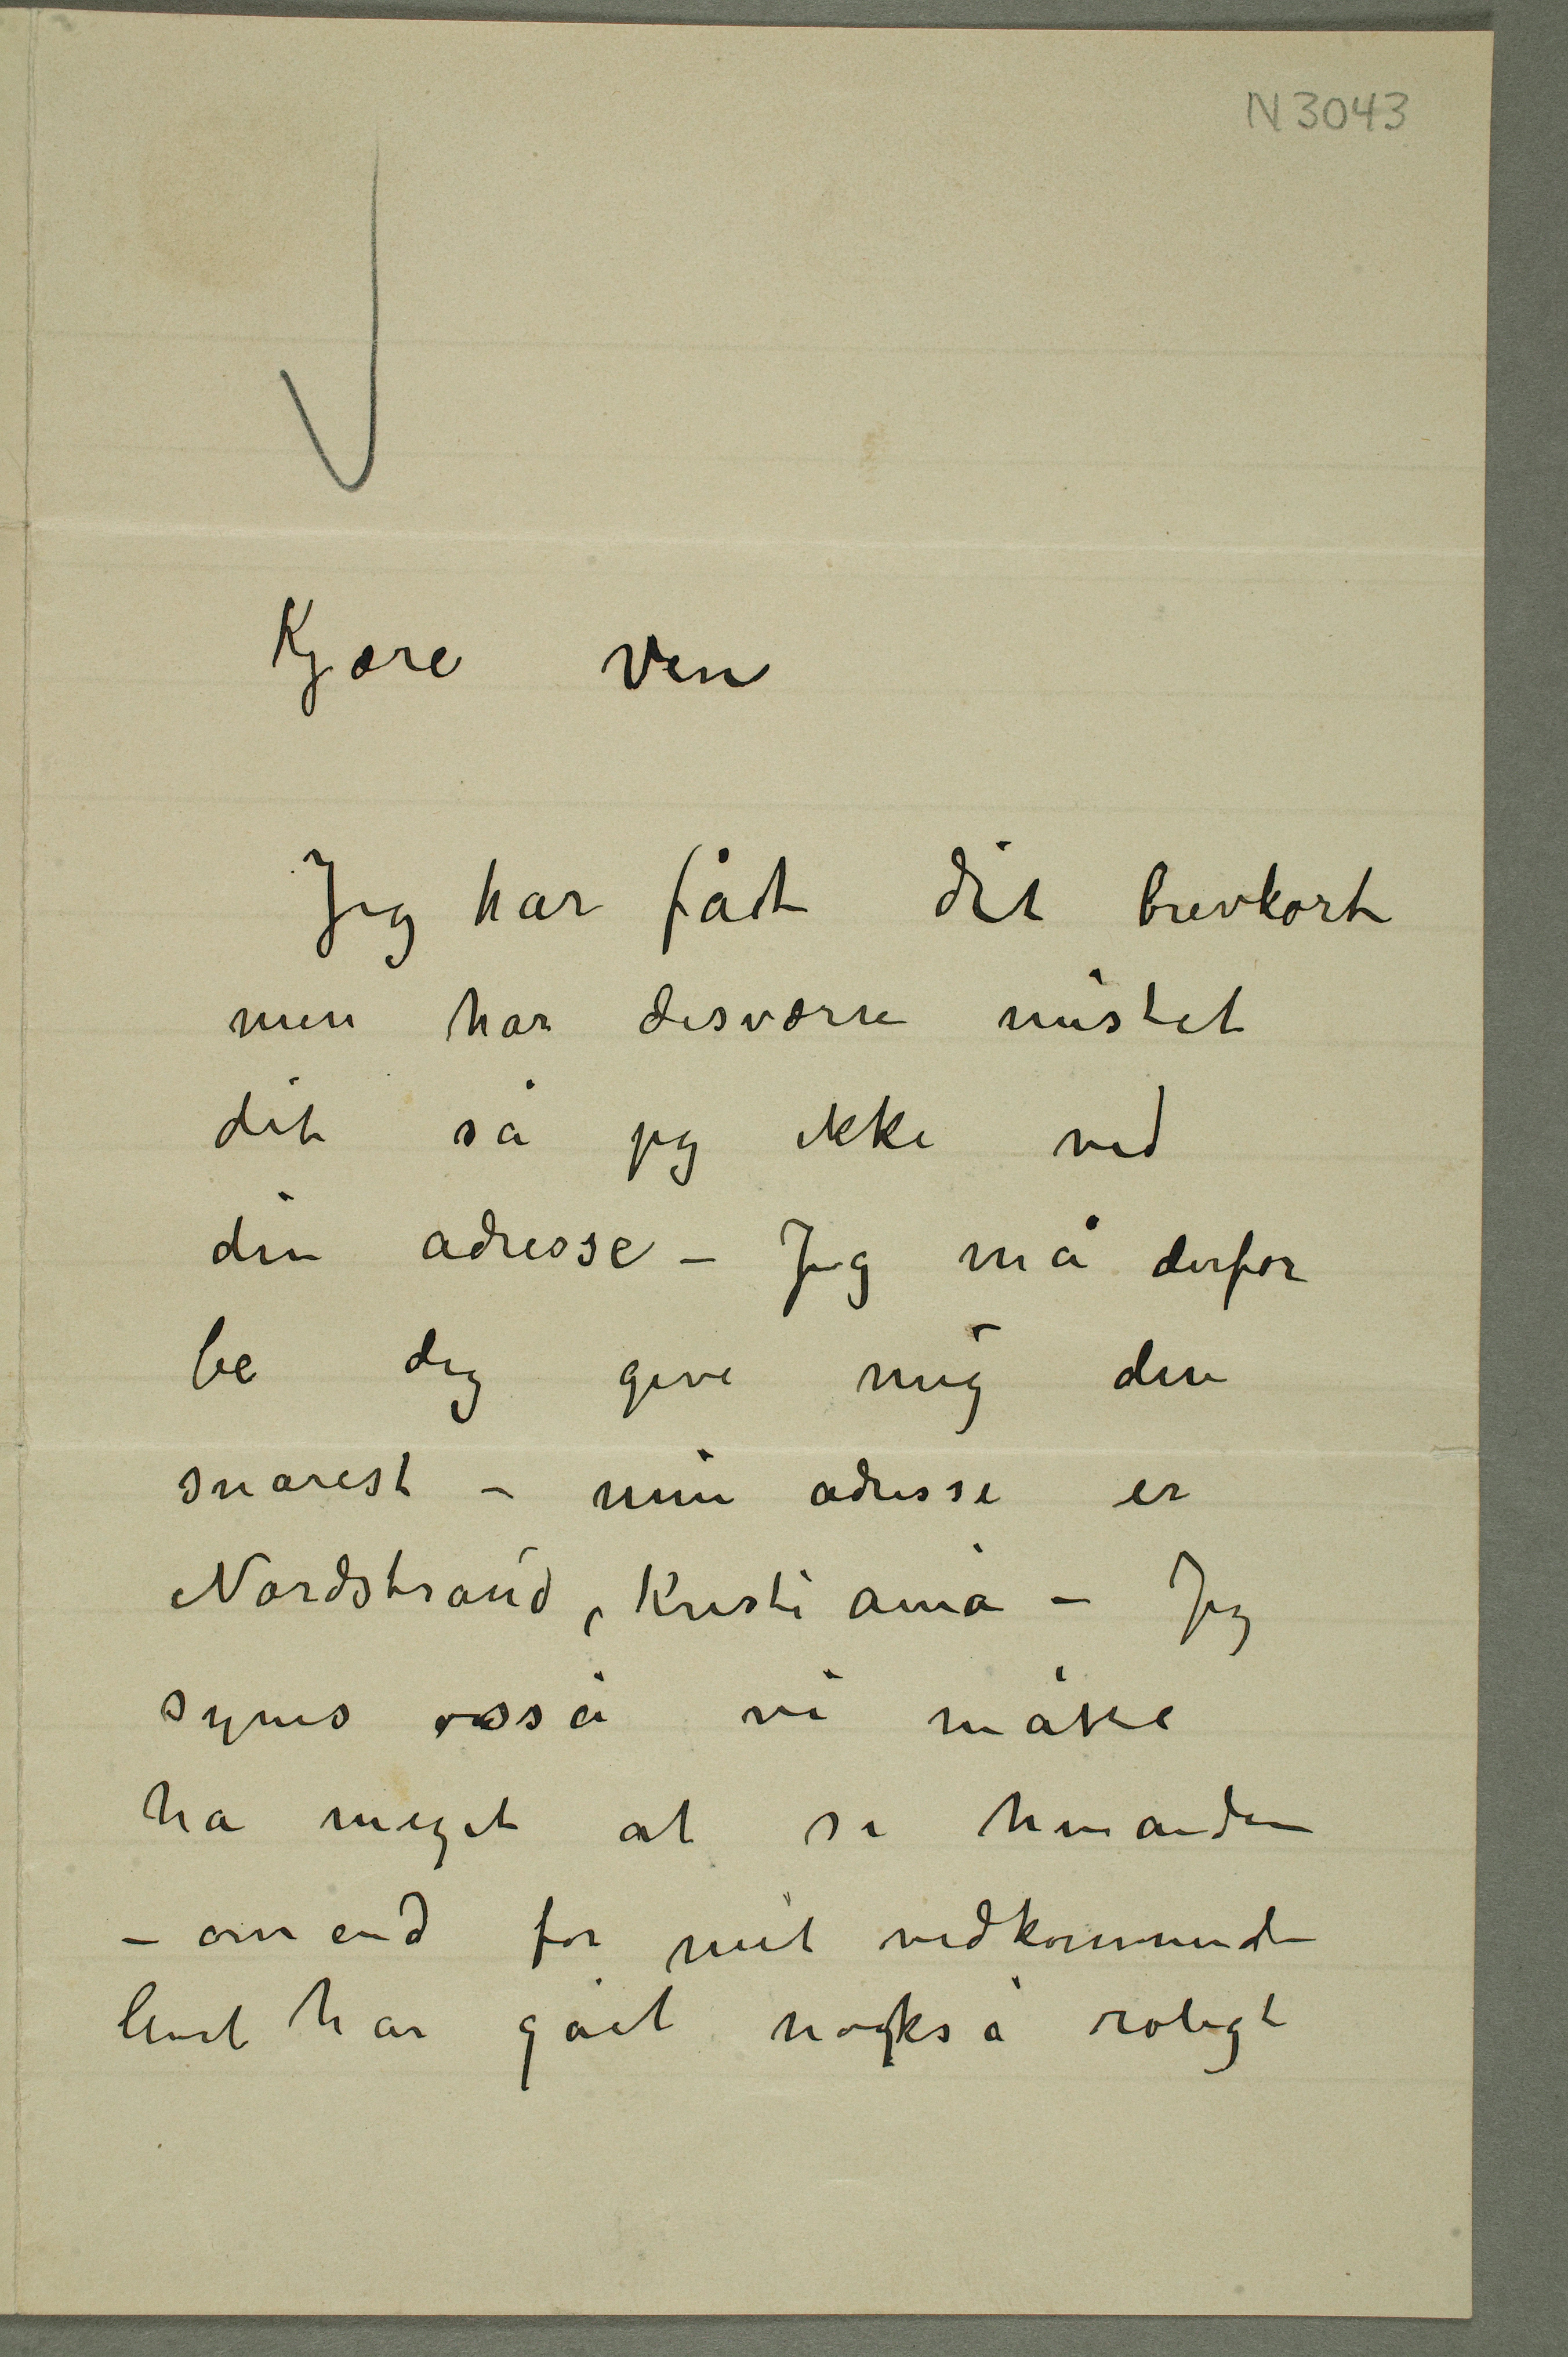 N 3043
Kjære ven
Jeg har fåt dit brevkort
men har desværre mistet
dit så jeg ikke ved
din adresse – Jeg må derfor
be dig give mig den
snarest – min adresse er
Nordstrand, Kristiania – Jeg
synes osså vi måtte
ha meget at se hinanden
– om end for mit vedkommende
livet har gået nokså roligt